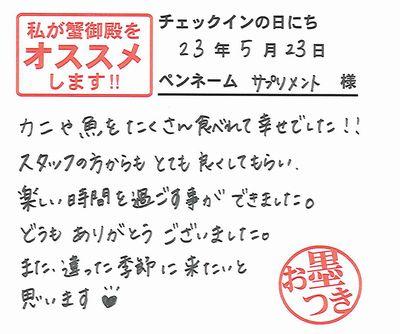 私が蟹御殿を
オススメ
します!!
チェックインの日にち
23年5月23日
ペンネーム サプリメント 様
カニや魚をたくさん食べれて幸せでした!!
スタッフの方からもとても良くしてもらい、
楽しい時間を過ごす事ができました。
どうもありがとうございました。
また、違った季節に来たいと
思います
お墨つき